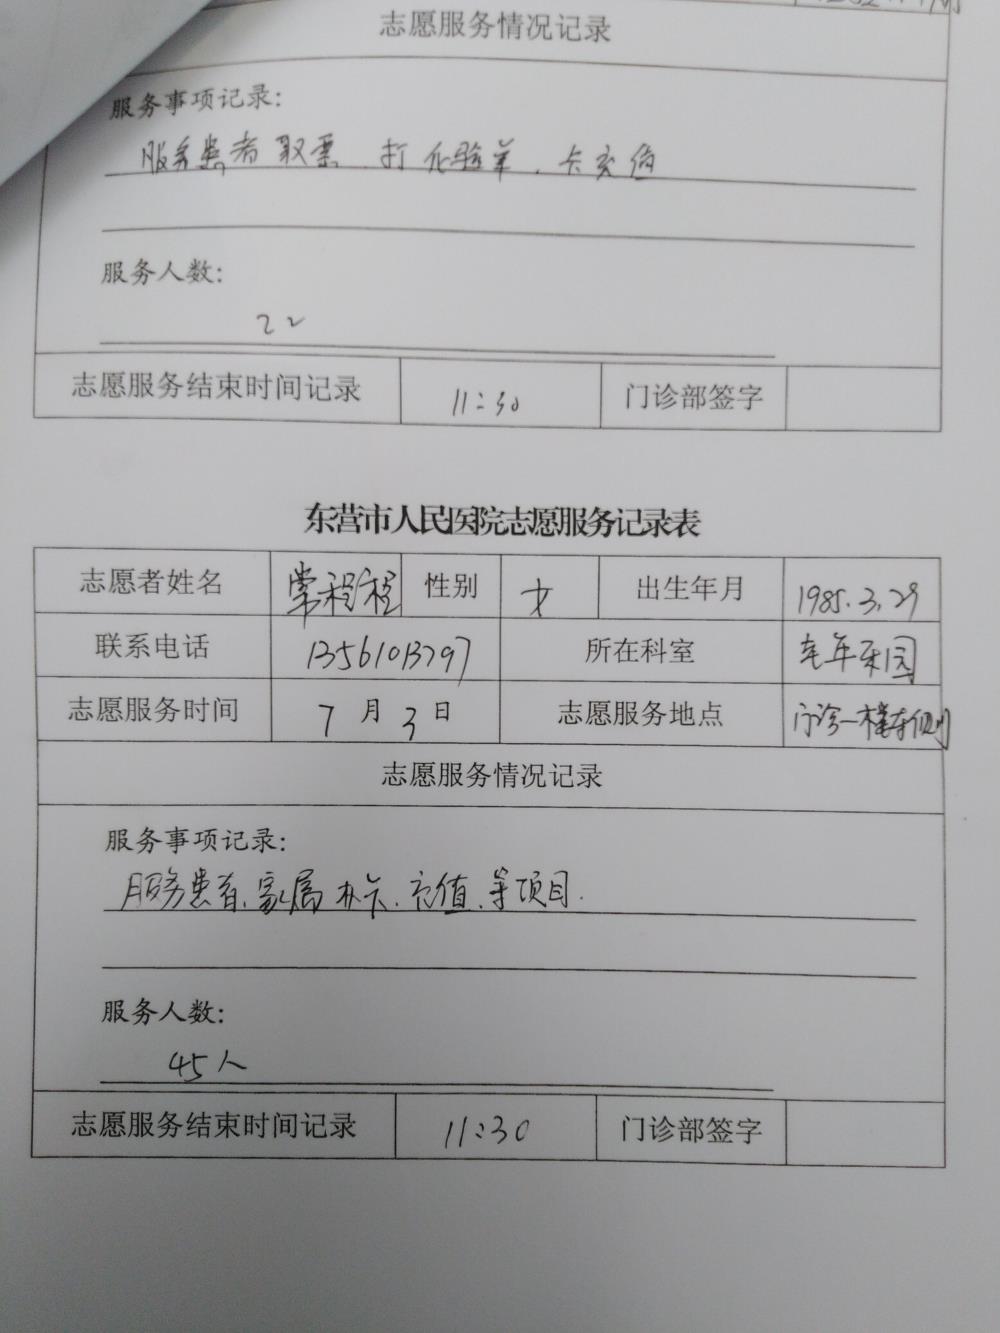 志愿服务情况记录
服务事项记录：
服务患者取票 打化验单、卡充值
服务人数：
22
志愿服务结束时间记录 11:30 门诊部签字
东营市人民医院志愿服务记录表
志愿者姓名 常程程 性别 女 出生年月 1985.3.29
联系电话 13561013797 所在科室 老年乐园
志愿服务时间 7月3日 志愿服务地点 门诊一楼东侧
志愿服务情况记录
服务事项记录：
服务患者、家属办卡、充值、等项目.
服务人数：
45人
志愿服务结束时间记录 11:30 门诊部签字